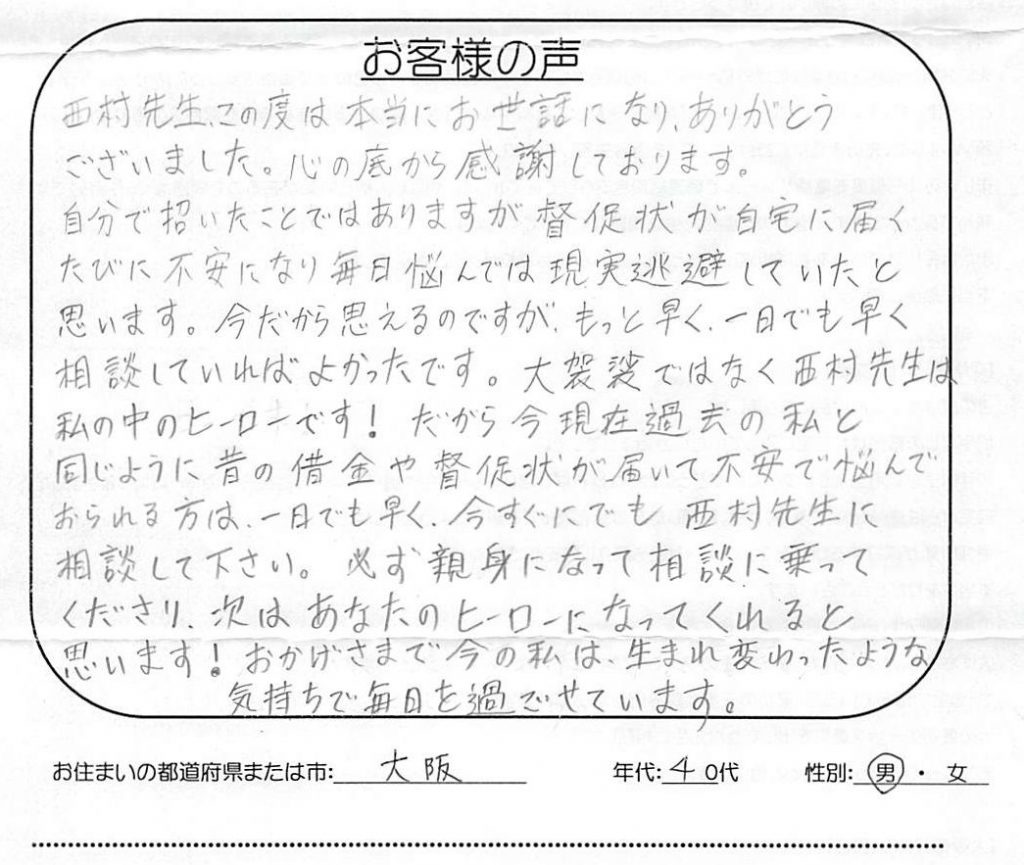 お客様の声
西村先生、この度は本当にお世話になり、ありがとう
ございました。心の底から感謝しております。
自分で招いたことではありますが督促状が自宅に届く
たびに不安になり毎日悩んでは現実逃避していたと
思います。今だから思えるのですが、もっと早く、一日でも早く
相談していればよかったです。大袈裟ではなく西村先生は
私の中のヒーローです！だから今現在過去の私と
同じように昔の借金や督促状が届いて不安で悩んで
おられる方は、一日でも早く、今すぐにでも西村先生に
相談して下さい。必ず親身になって相談に乗って
くださり、次はあなたのヒーローになってくれると
思います！おかげさまで今の私は生まれ変わったような
気持ちで毎日を過ごせています。
お住まいの都道府県または市: 大阪 年代: 40代 性別: 男・女